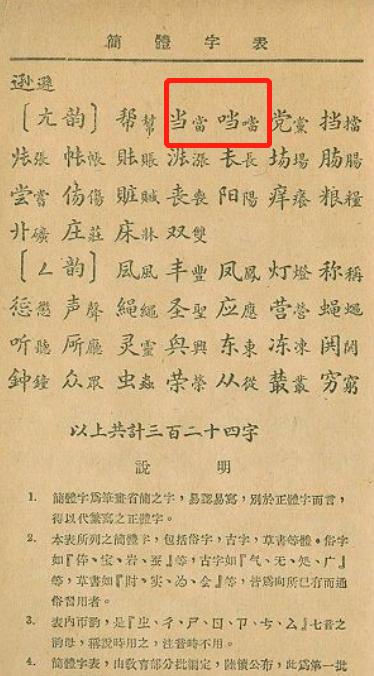 簡體字表
逊遜
〔ㄤ韵〕 帮幫 当當 𪠽噹 党黨 挡擋
张張 帐帳 账賬 涨漲 长長 场場 肠腸
尝嘗 伤傷 赃贓 丧喪 阳陽 痒癢 粮糧
卝礦 庄莊 床牀 双雙
〔ㄥ韵〕 凬風 丰豐 凤鳳 灯燈 称稱
惩懲 声聲 縄繩 圣聖 应應 营營 蝇蠅
听聽 厛廳 灵靈 兴興 东東 冻凍 閧鬨
鈡鐘 众眾 虫蟲 荣榮 从從 丛叢 穷窮
以上共計三百二十四字
說明
1. 簡體字爲筆畫省簡之字，易認易寫，別於正體字而言，
得以代繁寫之正體字。
2. 本表所列之簡體字，包括俗字，古字，草書等體。俗字
如『体、宝、岩、蚕』等，古字如『气、无、処、广』
等，草書如『时、实、为、会』等，皆爲向所已有而通
俗習用者。
3. 表內帀韵，是『ㄓ、ㄔ、ㄕ、ㄖ、ㄗ、ㄘ、ㄙ』七音之
韵母，稱說時用之，注音時不用。
4. 簡體字表，由敎育部分批制定，陸續公布，此爲第一批